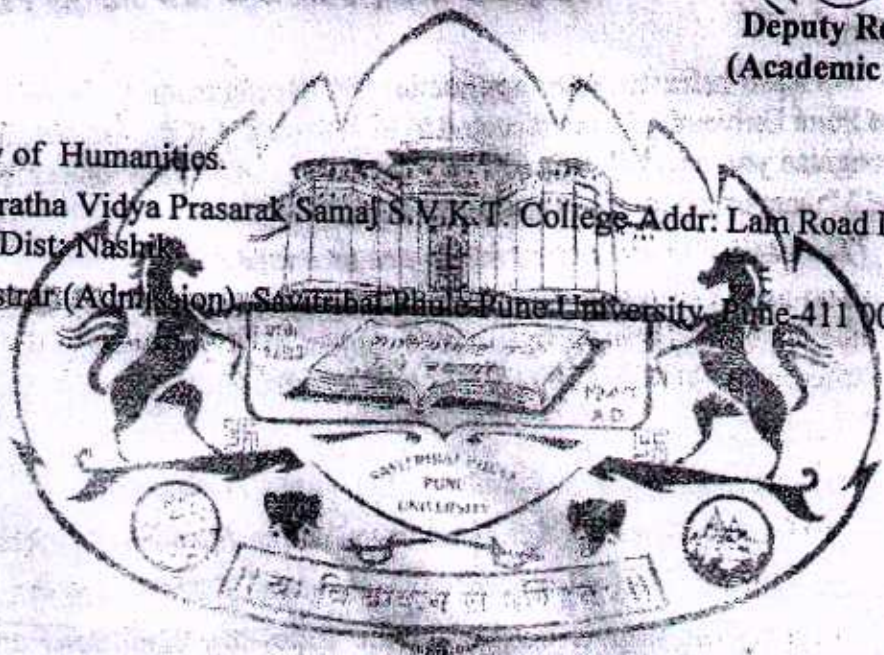 Deputy Re
(Academic
y of Humanities.
aratha Vidya Prasarak Samaj S.V.K.T. College Addr: Lam Road
Dist: Nashik
strar (Admission), Savitribai Phule Pune University, Pune-411 00
A.D.
SAVITRIBAI PHULE
PUNE
UNIVERSITY